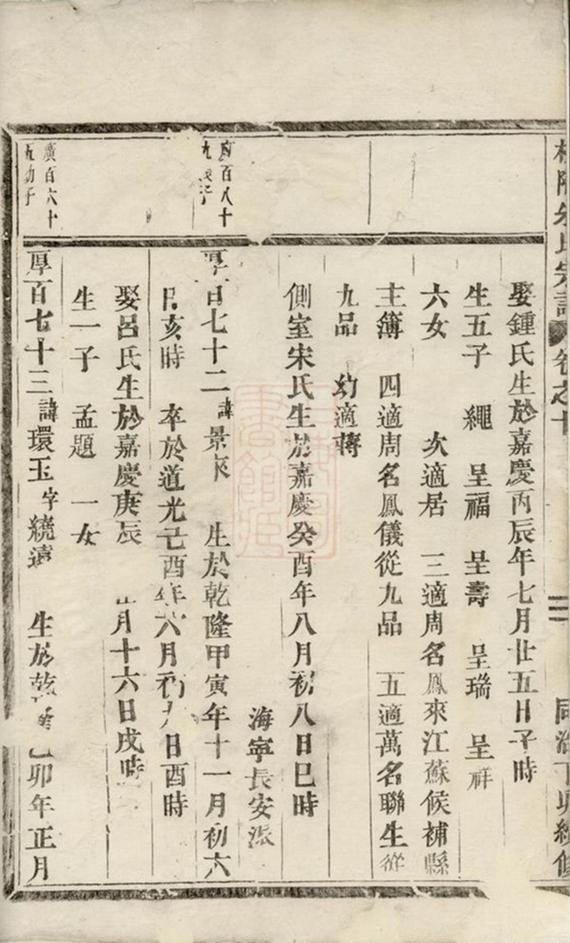 宗譜 卷之十
同治丁卯續修
娶鍾氏生於嘉慶丙辰年七月廿五日子時
生五子 繩 呈福 呈壽 呈瑞 呈祥
六女 次適居 三適周名鳳來江蘇候補縣
主簿 四適周名鳳儀從九品 五適萬名聯生從
九品 幼適蔣
側室宋氏生於嘉慶癸酉年八月初八日巳時
海寧長安派
百八十
厚百七十二諱景 生於乾隆甲寅年十一月初六
日亥時 卒於道光己酉年六月初九日酉時
娶呂氏生於嘉慶庚辰 月十六日戌時
生一子 孟題 一女
廣百六十
九幼子
厚百七十三諱環玉字繞遠 生於乾隆乙卯年正月